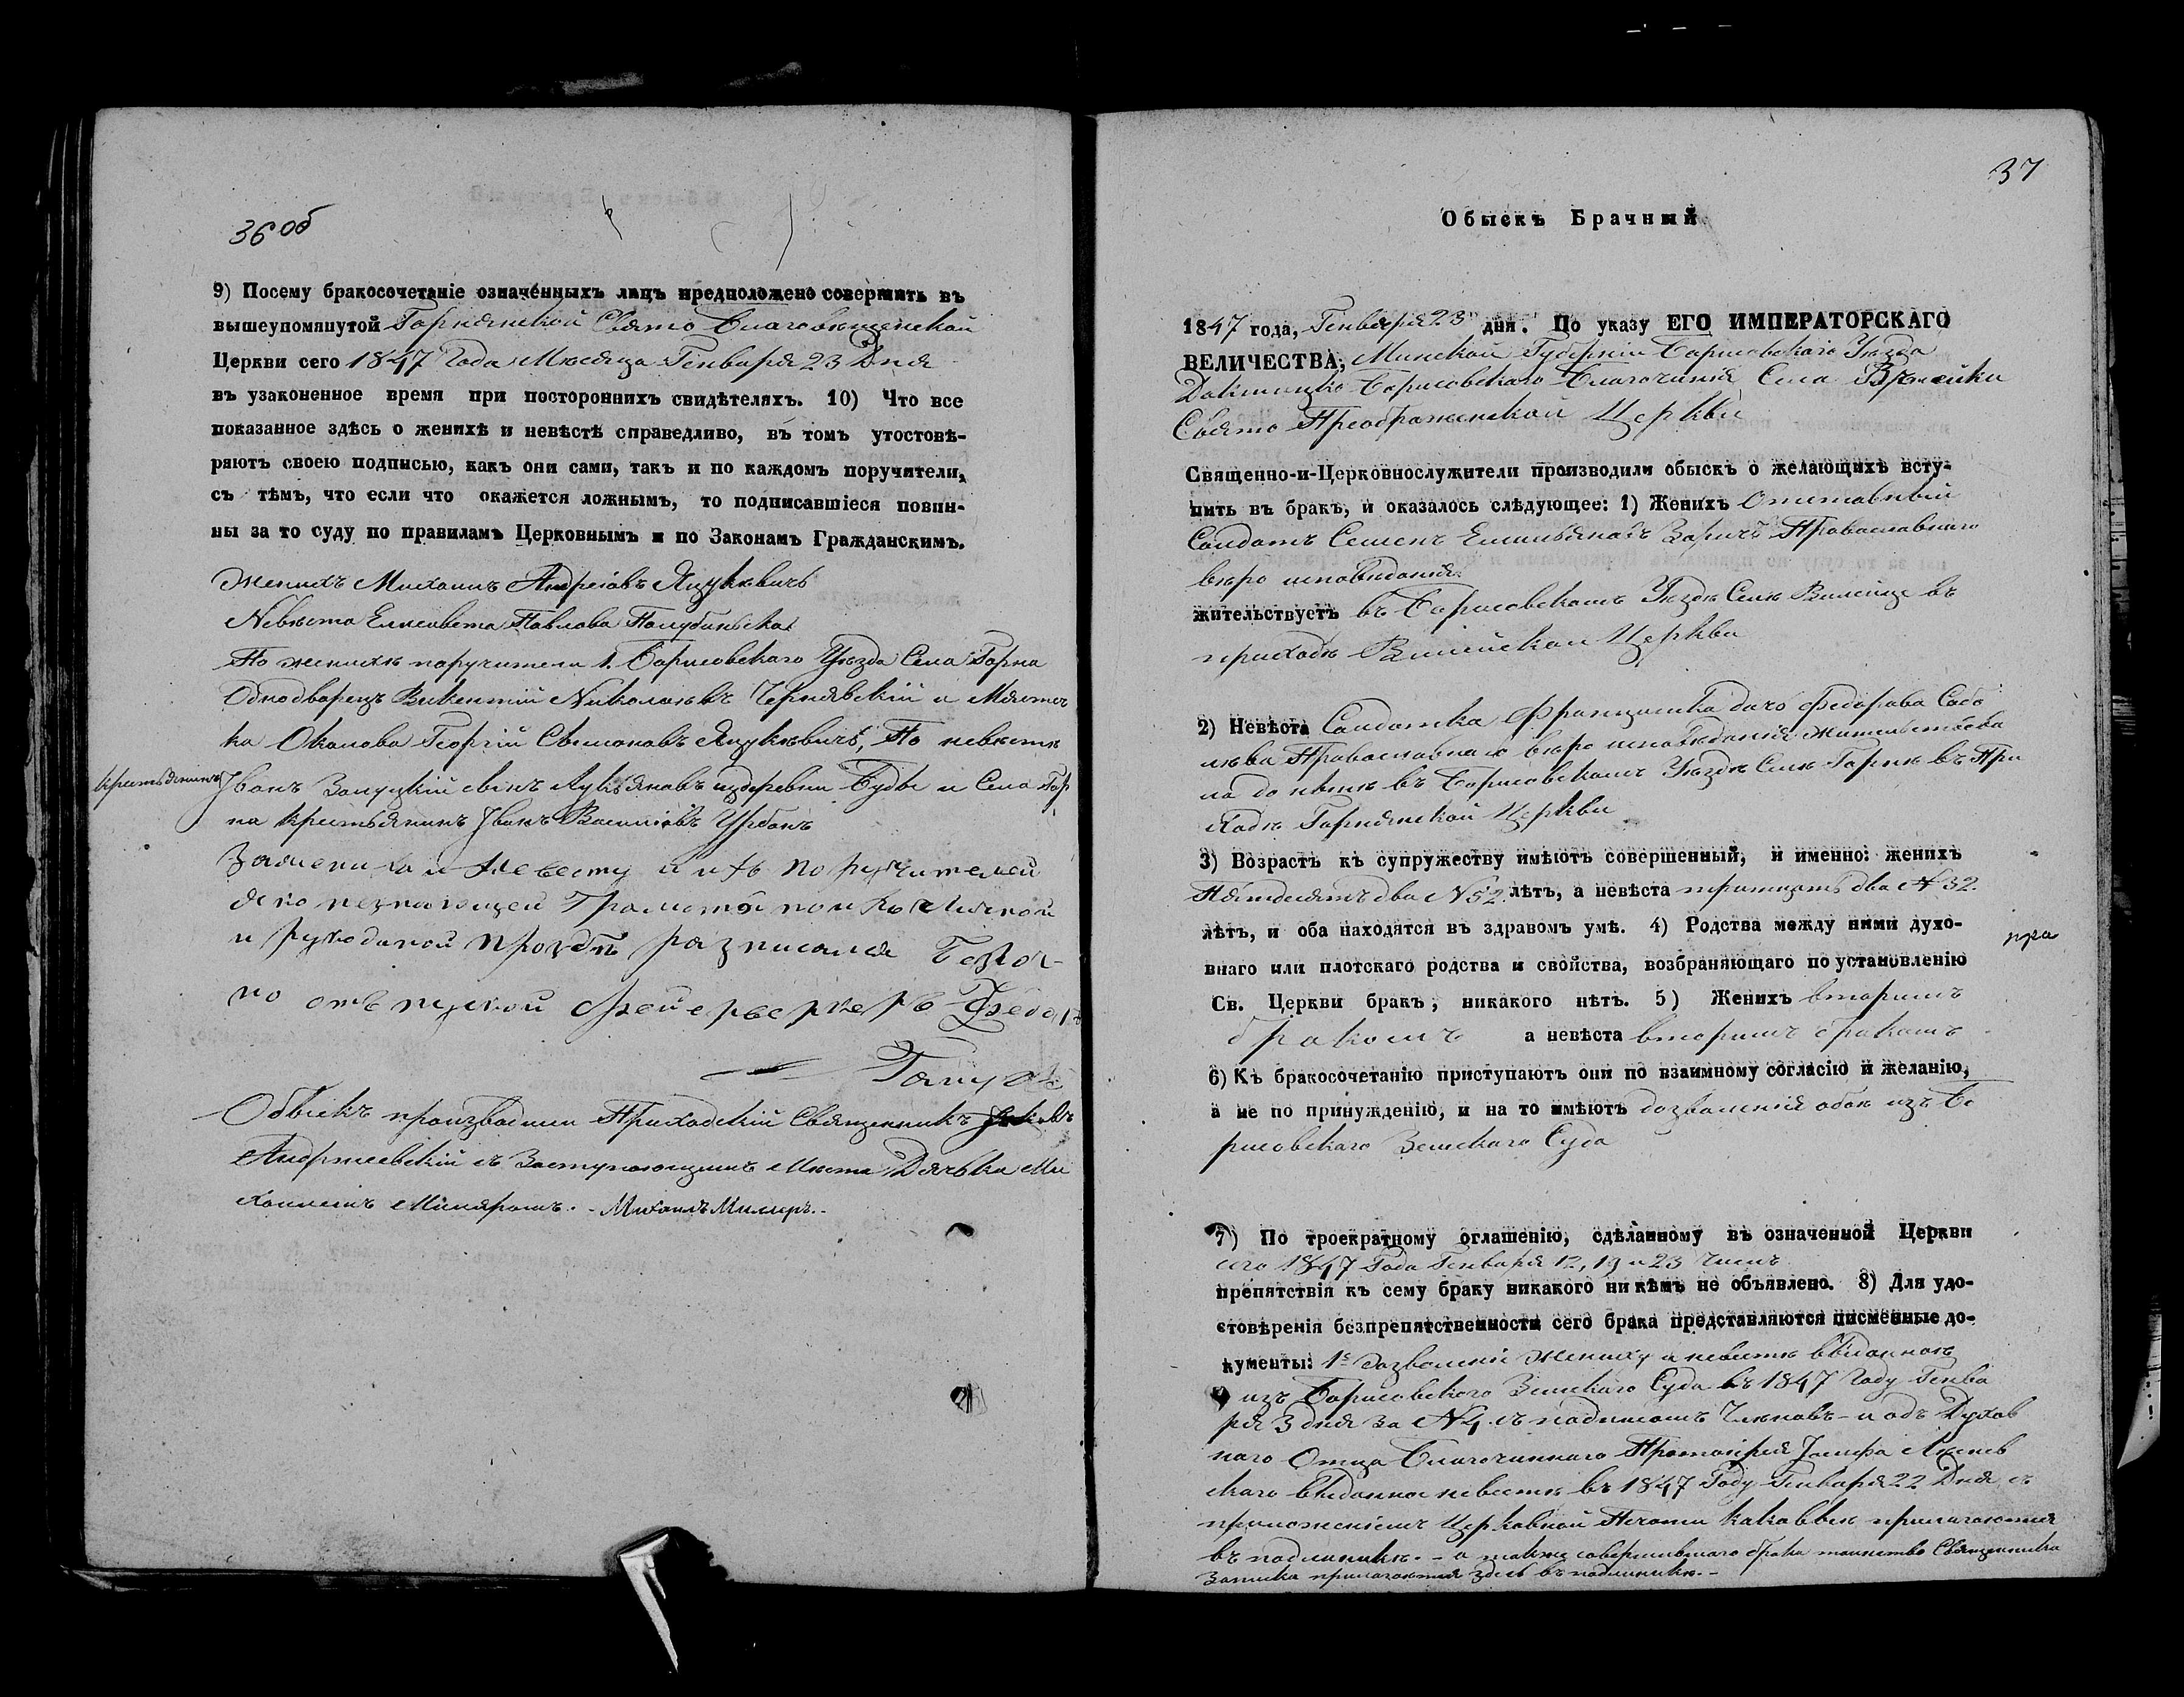 36 об
9) Посему бракосочетаніе означенныхъ лицъ предположено совершить въ
вышеупомянутой Гарнянской Свято Благовѣщенской
Церкви сего 1847 Года Мѣсяца Генваря 23 Дня
въ узаконенное время при постороннихъ свидѣтеляхъ. 10) Что все
показанное здѣсь о женихѣ и невѣстѣ справедливо, въ томъ утостовѣ-
ряютъ своею подписью, какъ они сами, такъ и по каждомъ поручители,
съ тѣмъ, что если что окажется ложнымъ, то подписавшіеся повин-
ны за то суду по правиламъ Церковнымъ и по Законамъ Гражданскимъ.
Женихъ Михаилъ Андреіовъ Яцукевичъ
Невѣста Елисавета Павлова
По женихѣ поручители 1. Борисовскаго Уѣзда Села Гарна
Однодворецъ Викентій Николаевъ Чернявскій и
Георгій Яцукевичъ, По невѣстѣ
крестьянинъ Іванъ сынъ Лукьяновъ издеревни Будъ и Села Гар
на крестьянинъ Іванъ Василіовъ Урбанъ
Зажениха и Невесту и ихъ поручителей
яко незнающей Грамоты поихъ личной
и рукоданой прозбѣ разписался Безсроч-
но отъпускной фейерверкеръ
Обыскъ произвадили Приходскій Священникъ
Андржеевскій съ Заступающимъ Мѣста Дячька Ми
хаиломъ Миляромъ. - Михаилъ Милеръ. -
37
Обыскъ Брачный
1847 года, Генваря 23 дня. По указу ЕГО ИМПЕРАТОРСКАГО
ВЕЛИЧЕСТВА, Минской Губерніи Борисовскаго Уѣзда
Докшицко Борисовскаго Благочинія Села
Свято Преображенской Церкви
Священно-и-Церковнослужители производили обыскъ о желающихъ всту-
пить въ бракъ, и оказалось слѣдующее: 1) Женихъ Отставный
Салдатъ Семенъ Емильяновъ Православнаго
вѣроисповѣданія
жительствуетъ въ Борисовскомъ Уѣздѣ Селѣ въ
приходѣ Церкви
2) Невѣста Салдатка Францишка дочь Федорова
Православнаго вѣроисповѣданія жительствова
ла до нынѣ въ Борисовскомъ Уѣздѣ Селѣ Гарнѣ въ При
ходѣ Гарнянской Церкви
3) Возрастъ къ супружеству имѣютъ совершенный, и именно: женихъ
Пятдесятъ два N 52. лѣтъ, а невѣста тритцать два N 32.
лѣтъ, и оба находятся въ здравомъ умѣ. 4) Родства между ними духо-
внаго или плотскаго родства и свойства, возбраняющаго по установленію
Св. Церкви бракъ, никакого нѣтъ. 5) Женихъ вторымъ
бракомъ а невѣста вторымъ бракомъ
6) Къ бракосочетанію приступаютъ они по взаимному согласію и желанію,
а не по принужденію, и на то имѣютъ дозваленія обое изъ Бо
рисовскаго Земскаго Суда
7) По троекратному оглашенію, сдѣланному въ означенной Церкви
сего 1847 Года Генваря 12, 19 и 23 Числъ
препятствія къ сему браку никакого ни кѣмъ не объявлено. 8) Для удо-
стовѣренія безпрепятственности сего брака представляются писменные до-
кументы: 1е дазваленіи жениху и невестѣ
изъ Борисовского Земскаго Суда въ 1847 Году Генва
ря 3 дня за N 4. съ падписомъ Членовъ - и одъ Духов
наго Отца Благочиннаго Протоірея Іосифа
выданное невестѣ въ 1847 Году Генваря 22 Дня съ
приложеніемъ Церковной Печати прилагаются
въ падлиникѣ. - а также совершившаго брака таинство Священника
Записка прилагается здесь въ падлиникѣ. -